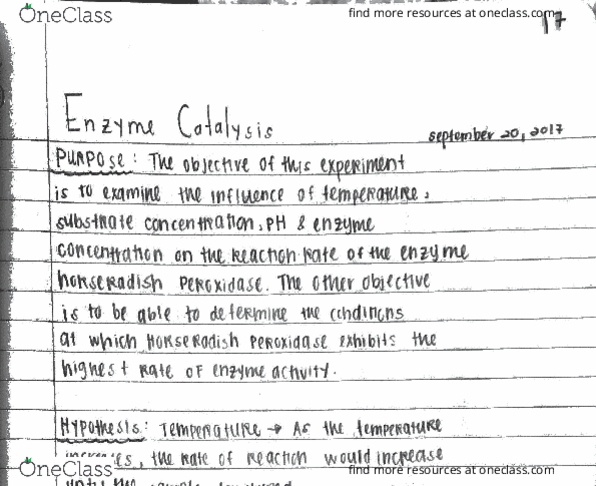 OneClass
find more resources at oneclass.com
17
Enzyme Catalysis
september 20, 2017
PURPOSE: The objective of this experiment
is to examine the influence of temperature,
substrate concentration, PH & enzyme
concentration on the reaction rate of the enzyme
horseradish peroxidase. The other objective
is to be able to determine the conditions
at which Horseradish peroxidase exhibits the
highest rate of enzyme activity.
Hypothesis: Temperature → As the temperature
increases, the rate of reaction would increase
until the
OneClass
find more resources at oneclass.com